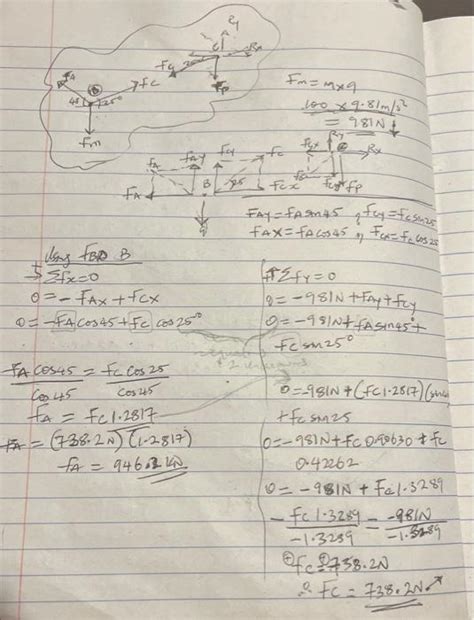 Ry
A
C
Rx
Fy
20
Fp
FA
B
FC
45
25°
Fm
Fm = m×g
100 × 9.81m/s²
= 981N ↓
FA FAy FCy FC
FCx Ry Rx
FA B 25 FCx
FCy FP
FAY = FA sin45, FCy = FC sin25
FAX = FA cos45, FCX = FC cos25
Using FBD B
→ ΣFx=0
0 = -FAX + FCX
0 = -FA cos45 + FC cos25°
FA cos45 = FC cos25
cos45 cos45
FA = FC 1.2817
FA = (738.2N)(1.2817)
FA = 946.2 kN
↑ ΣFY=0
0 = -981N + FAY + FCY
0 = -981N + FA sin45° +
FC sin25°
0 = -981N + (FC 1.2817)(sin45)
+ FC sin25
0 = -981N + FC 0.90630 + FC
0.42262
0 = -981N + FC 1.3289
-FC 1.3289 = -981N
-1.3289 -1.3289
FC = 738.2N
∴ FC = 738.2N ↗